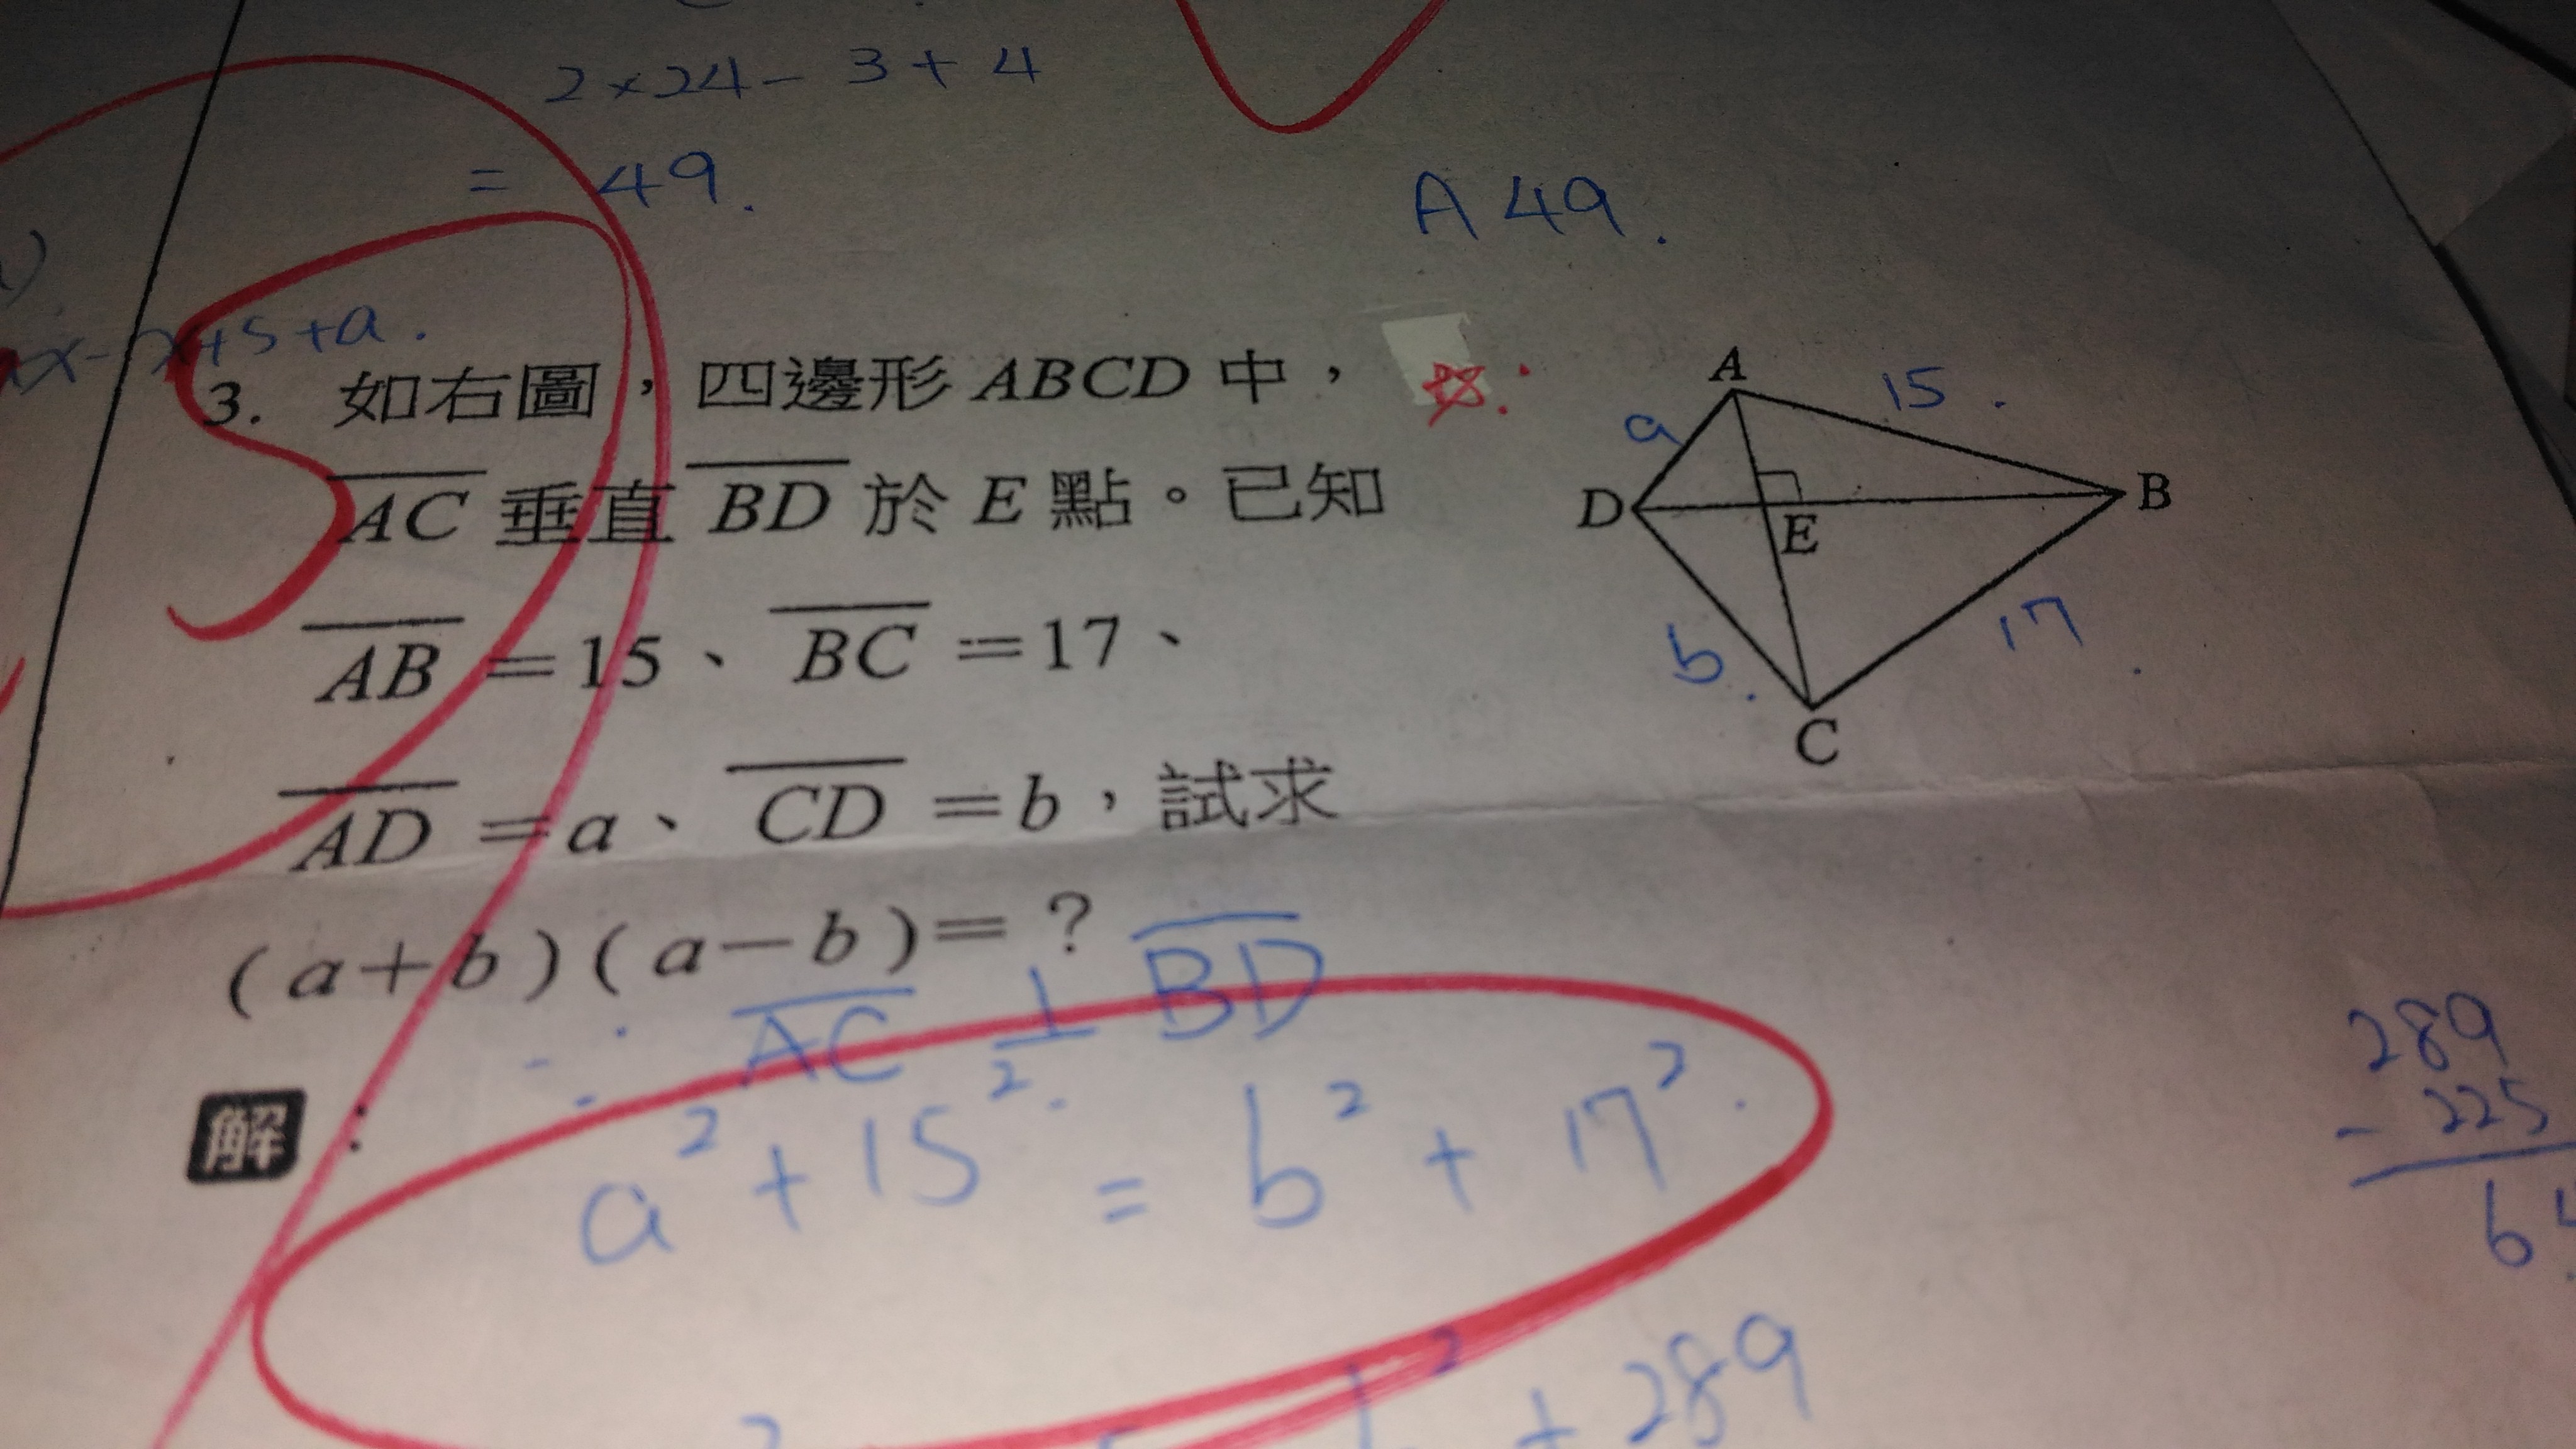 2×24-3+4
= 49.
A 49.
+5+a.
3. 如右圖，四邊形 ABCD 中，
AC 垂直 BD 於 E 點。已知
AB =15、BC =17、
AD =a、CD =b，試求
(a+b)(a-b)=？
A
15.
a
D
B
E
b.
17.
C
∵ AC ⊥ BD
解：
a²+15² = b²+17².
289
-225
64.
b²+289